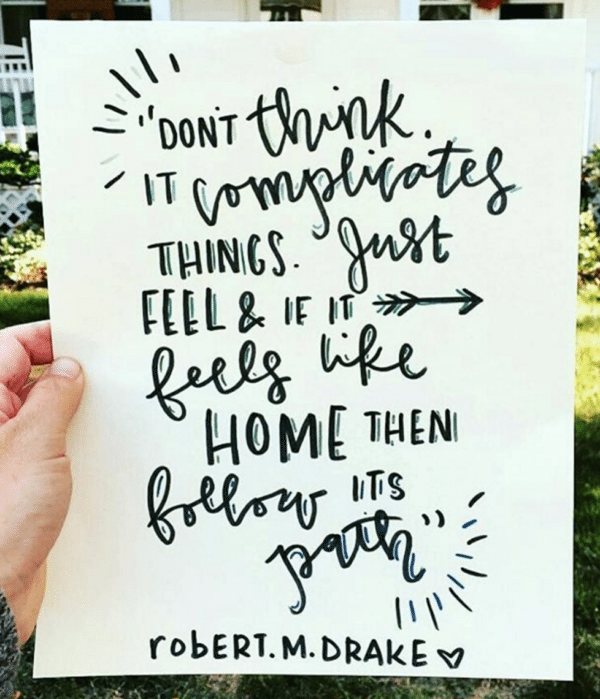 "DON'T think.
IT complicates
THINGS. Just
FEEL & IF IT
feels like
HOME THEN
follow ITS
path"
robERT.M.DRAKE ♡